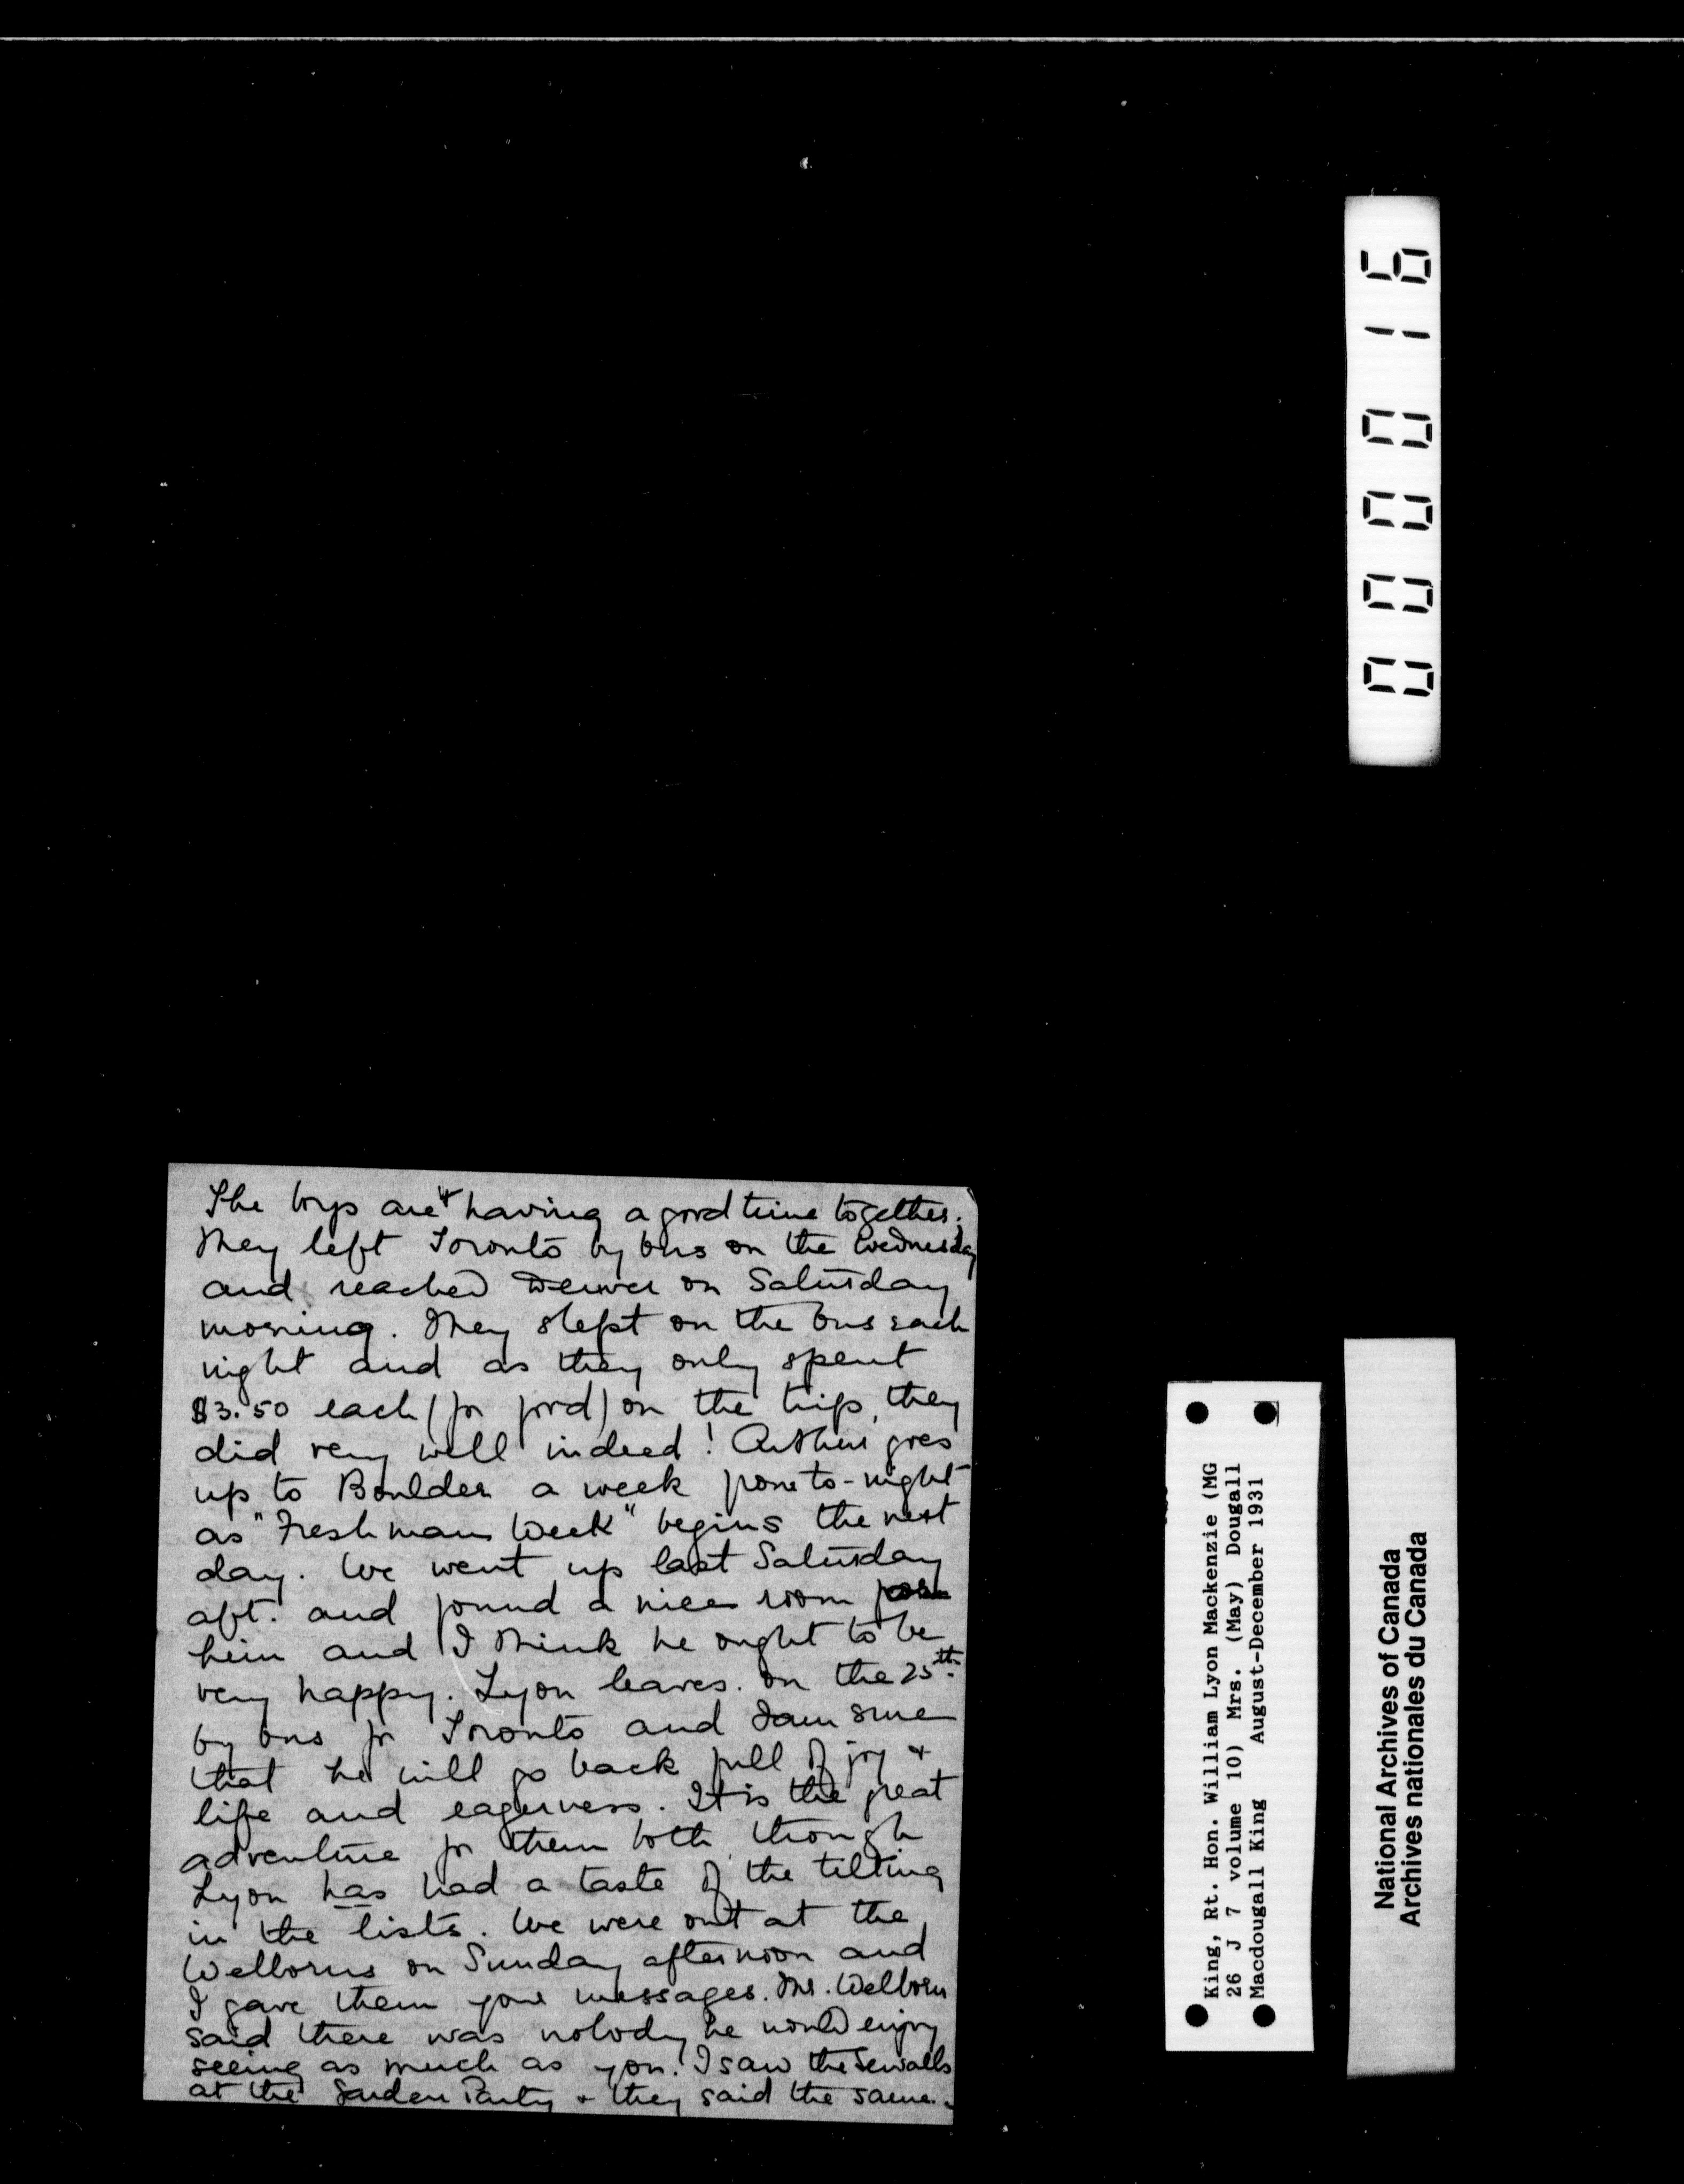 The boys are having a good time together.
They left Toronto by bus on the Wednesday
and reached Denver on Saturday
morning. They slept on the bus each
night and as they only spent
$3.50 each (for food) on the trip, they
did very well indeed! Arthur goes
up to Boulder a week from to-night
as "Freshman Week" begins the next
day. We went up last Saturday
aft. and found a nice room for
him and I think he ought to be
very happy. Lyon leaves on the 25th
by bus for Toronto and I am sure
that he will go back full of joy &
life and eagerness. It is the great
adventure for them both though
Lyon has had a taste of the tilting
in the lists. We were out at the
Welborns on Sunday afternoon and
I gave them your messages. Mr. Welborn
said there was nobody he would enjoy
seeing as much as you. I saw the Sewalls
at the Garden Party & they said the same.
000016
King, Rt. Hon. William Lyon Mackenzie (MG
26 J 7 volume 10) Mrs. (May) Dougall
Macdougall King August-December 1931
National Archives of Canada
Archives nationales du Canada